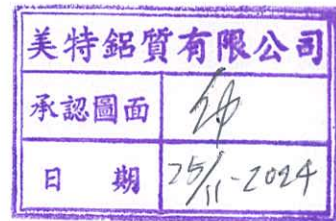 美特鋁質有限公司
承認圖面
日期 25/11-2024